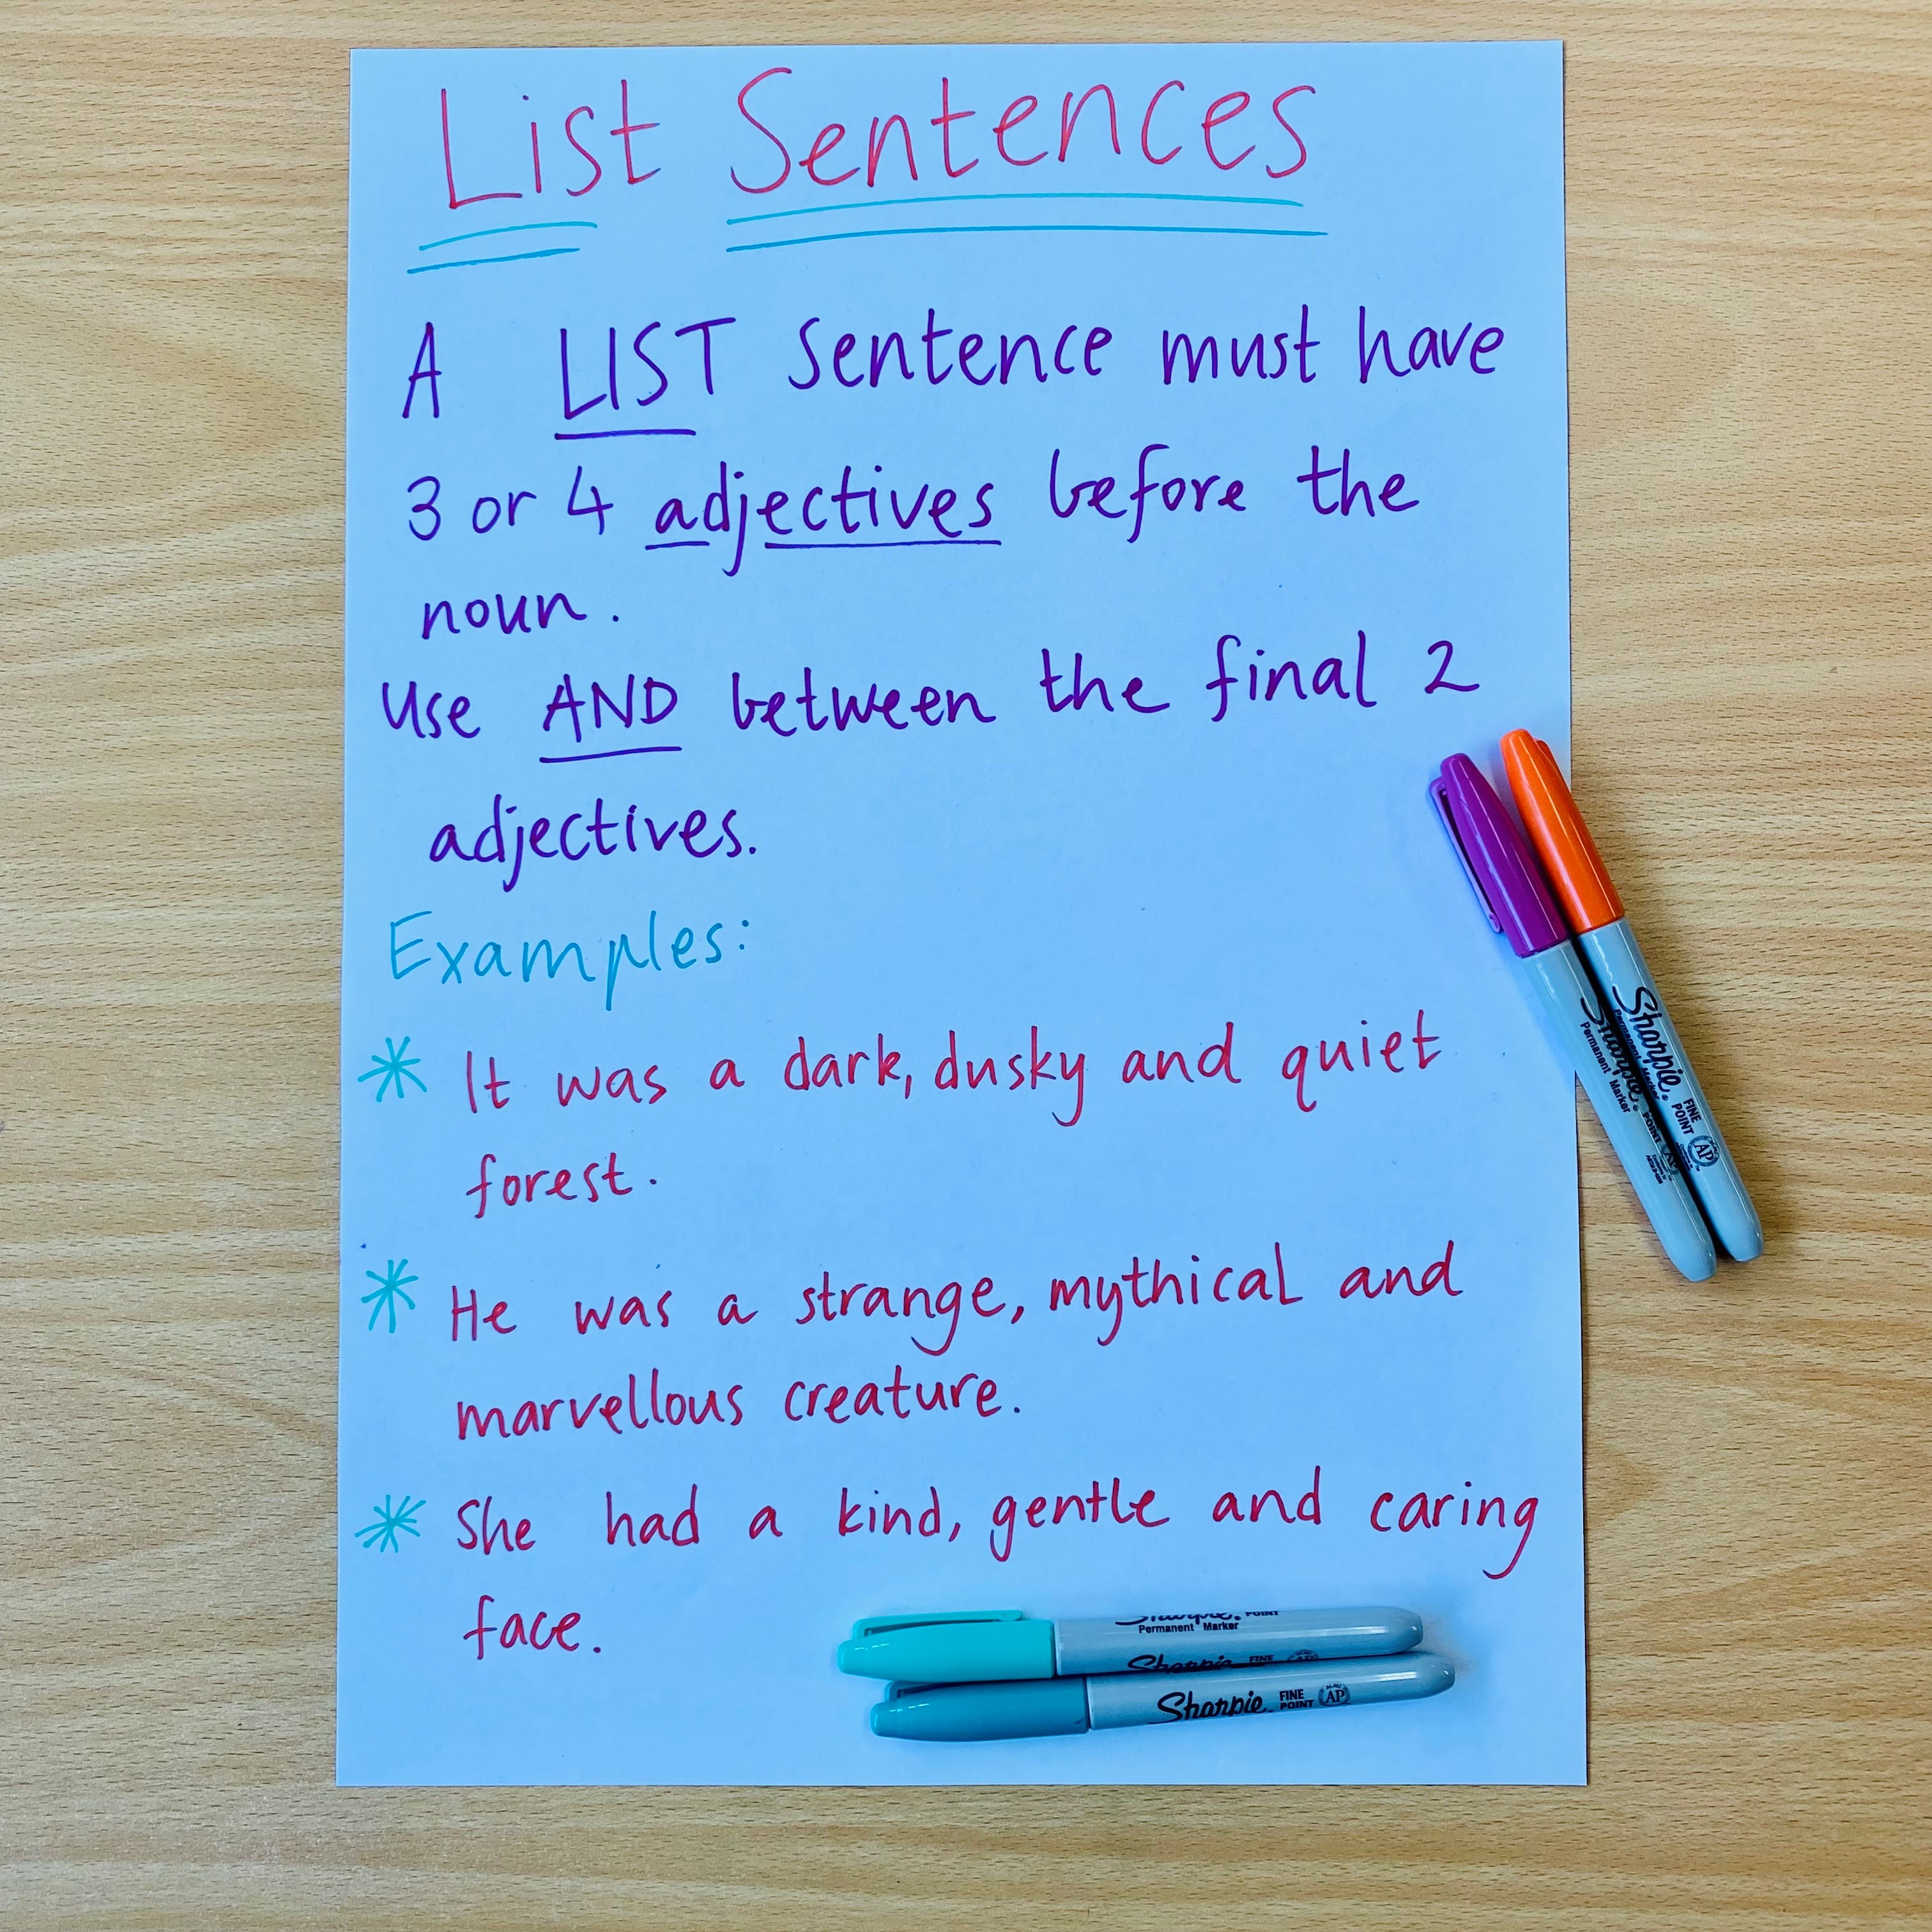 List Sentences
A LIST sentence must have
3 or 4 adjectives before the
noun.
Use AND between the final 2
adjectives.
Examples:
* It was a dark, dusky and quiet
forest.
* He was a strange, mythical and
marvellous creature.
* She had a kind, gentle and caring
face.
Sharpie.
Permanent Marker
FINE
POINT
AP
Sharpie.
Permanent Marker
POINT
Sharpie. POINT
Permanent Marker
Sharpie FINE
Sharpie. FINE
POINT
AP